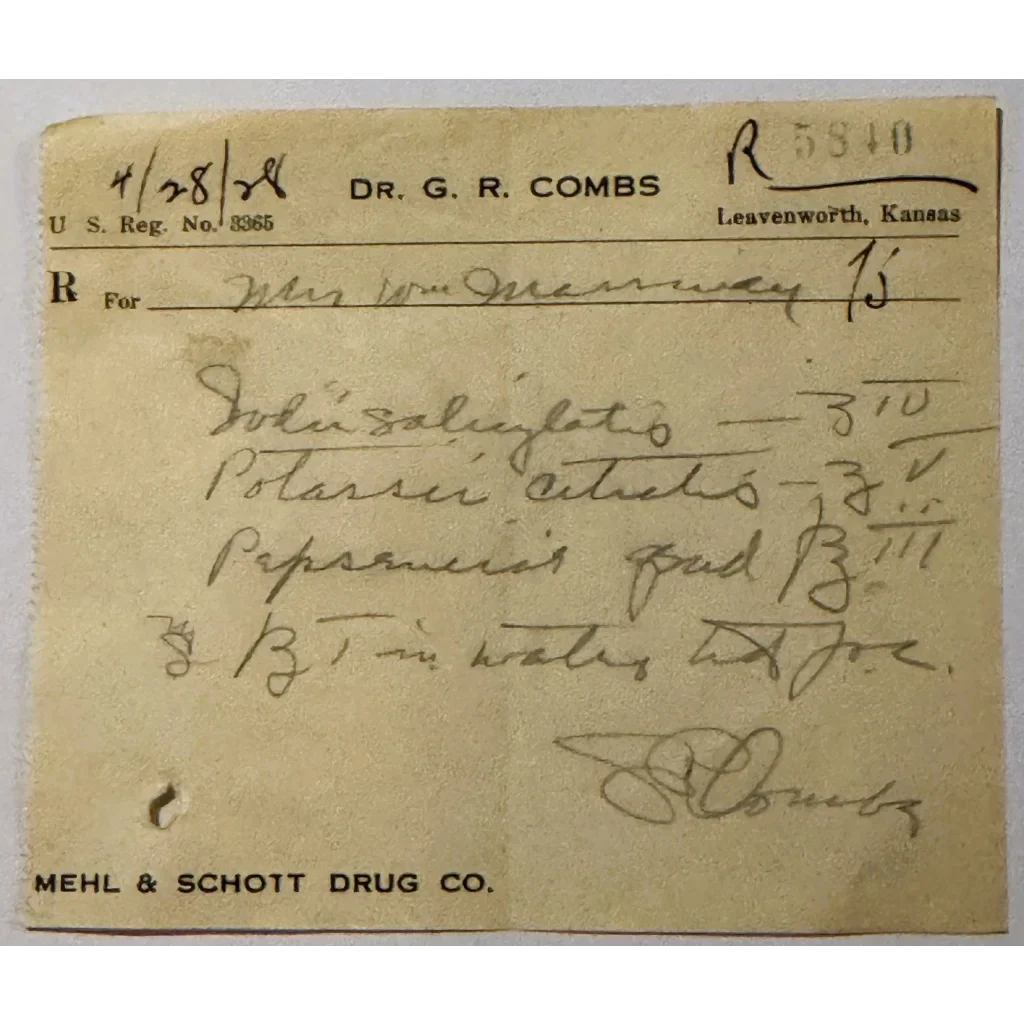 4/28/28 DR. G. R. COMBS R 5840
U S. Reg. No. 3365 Leavenworth, Kansas
R For Mrs Wm
Sodii salicylatis — ʒ IV
Potassii citratis — ʒ V
ʒ III
ʒ I in water
G R Combs
MEHL & SCHOTT DRUG CO.